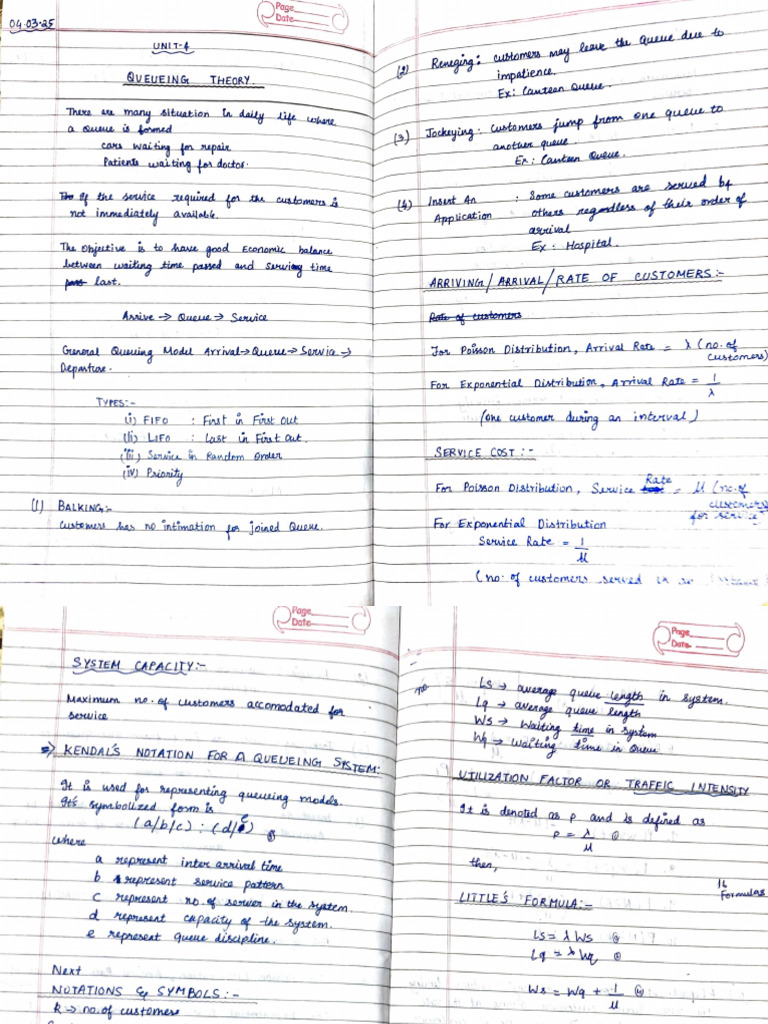 04.03.25
Page
Date
UNIT-4
QUEUEING THEORY.
There are many situation in daily life where
a queue is formed
cars waiting for repair
Patients waiting for doctor.
of the service required for the customers is
not immediately available.
The Objective is to have good Economic balance
between waiting time passed and serving time
last.
Arrive → Queue → Service
General Queuing Model Arrival → Queue → Servia →
Departure.
TYPES:-
(i) FIFO : First in First Out
(ii) LIFO : Last in First Out.
(iii) Service in Random Order
(iv) Priority
(1) BALKING:-
Customers has no intimation for joined Queue.
(2) Reneging: customers may leave the Queue due to
impatience.
Ex: Canteen Queue.
(3) Jockeying: customers jump from one queue to
another queue.
Ex: Canteen Queue.
(4) Insert An : Some customers are served by
Application others regardless of their order of
arrival
Ex: Hospital.
ARRIVING/ARRIVAL/RATE OF CUSTOMERS:-
Rate of customers
For Poisson Distribution, Arrival Rate = λ (no. of
customers)
For Exponential Distribution, Arrival Rate = 1/λ
(one customer during an interval)
SERVICE COST:-
For Poisson Distribution, Service Rate = μ (no. of
customers
for service
For Exponential Distribution
Service Rate = 1/μ
(no. of customers served in
Page
Date
SYSTEM CAPACITY:-
Maximum no. of customers accomodated for
service
⇒ KENDAL'S NOTATION FOR A QUEUEING SYSTEM:
It is used for representing queuing models.
It's symbolized form is
(a/b/c) : (d/e)
where
a represent inter arrival time
b represent service pattern
c represent no. of server in the system.
d represent capacity of the system.
e represent queue discipline.
Next
NOTATIONS & SYMBOLS:-
k → no. of customers
Page
Date
Ls → average queue length in system.
Lq → average queue length
Ws → Waiting time in system
Wq → Waiting time in Queue
UTILIZATION FACTOR OR TRAFFIC INTENSITY
It is denoted as ρ and is defined as
ρ = λ/μ
then,
16
Formulas
LITTLE'S FORMULA:-
Ls = λ Ws
Lq = λ Wq
Ws = Wq + 1/μ